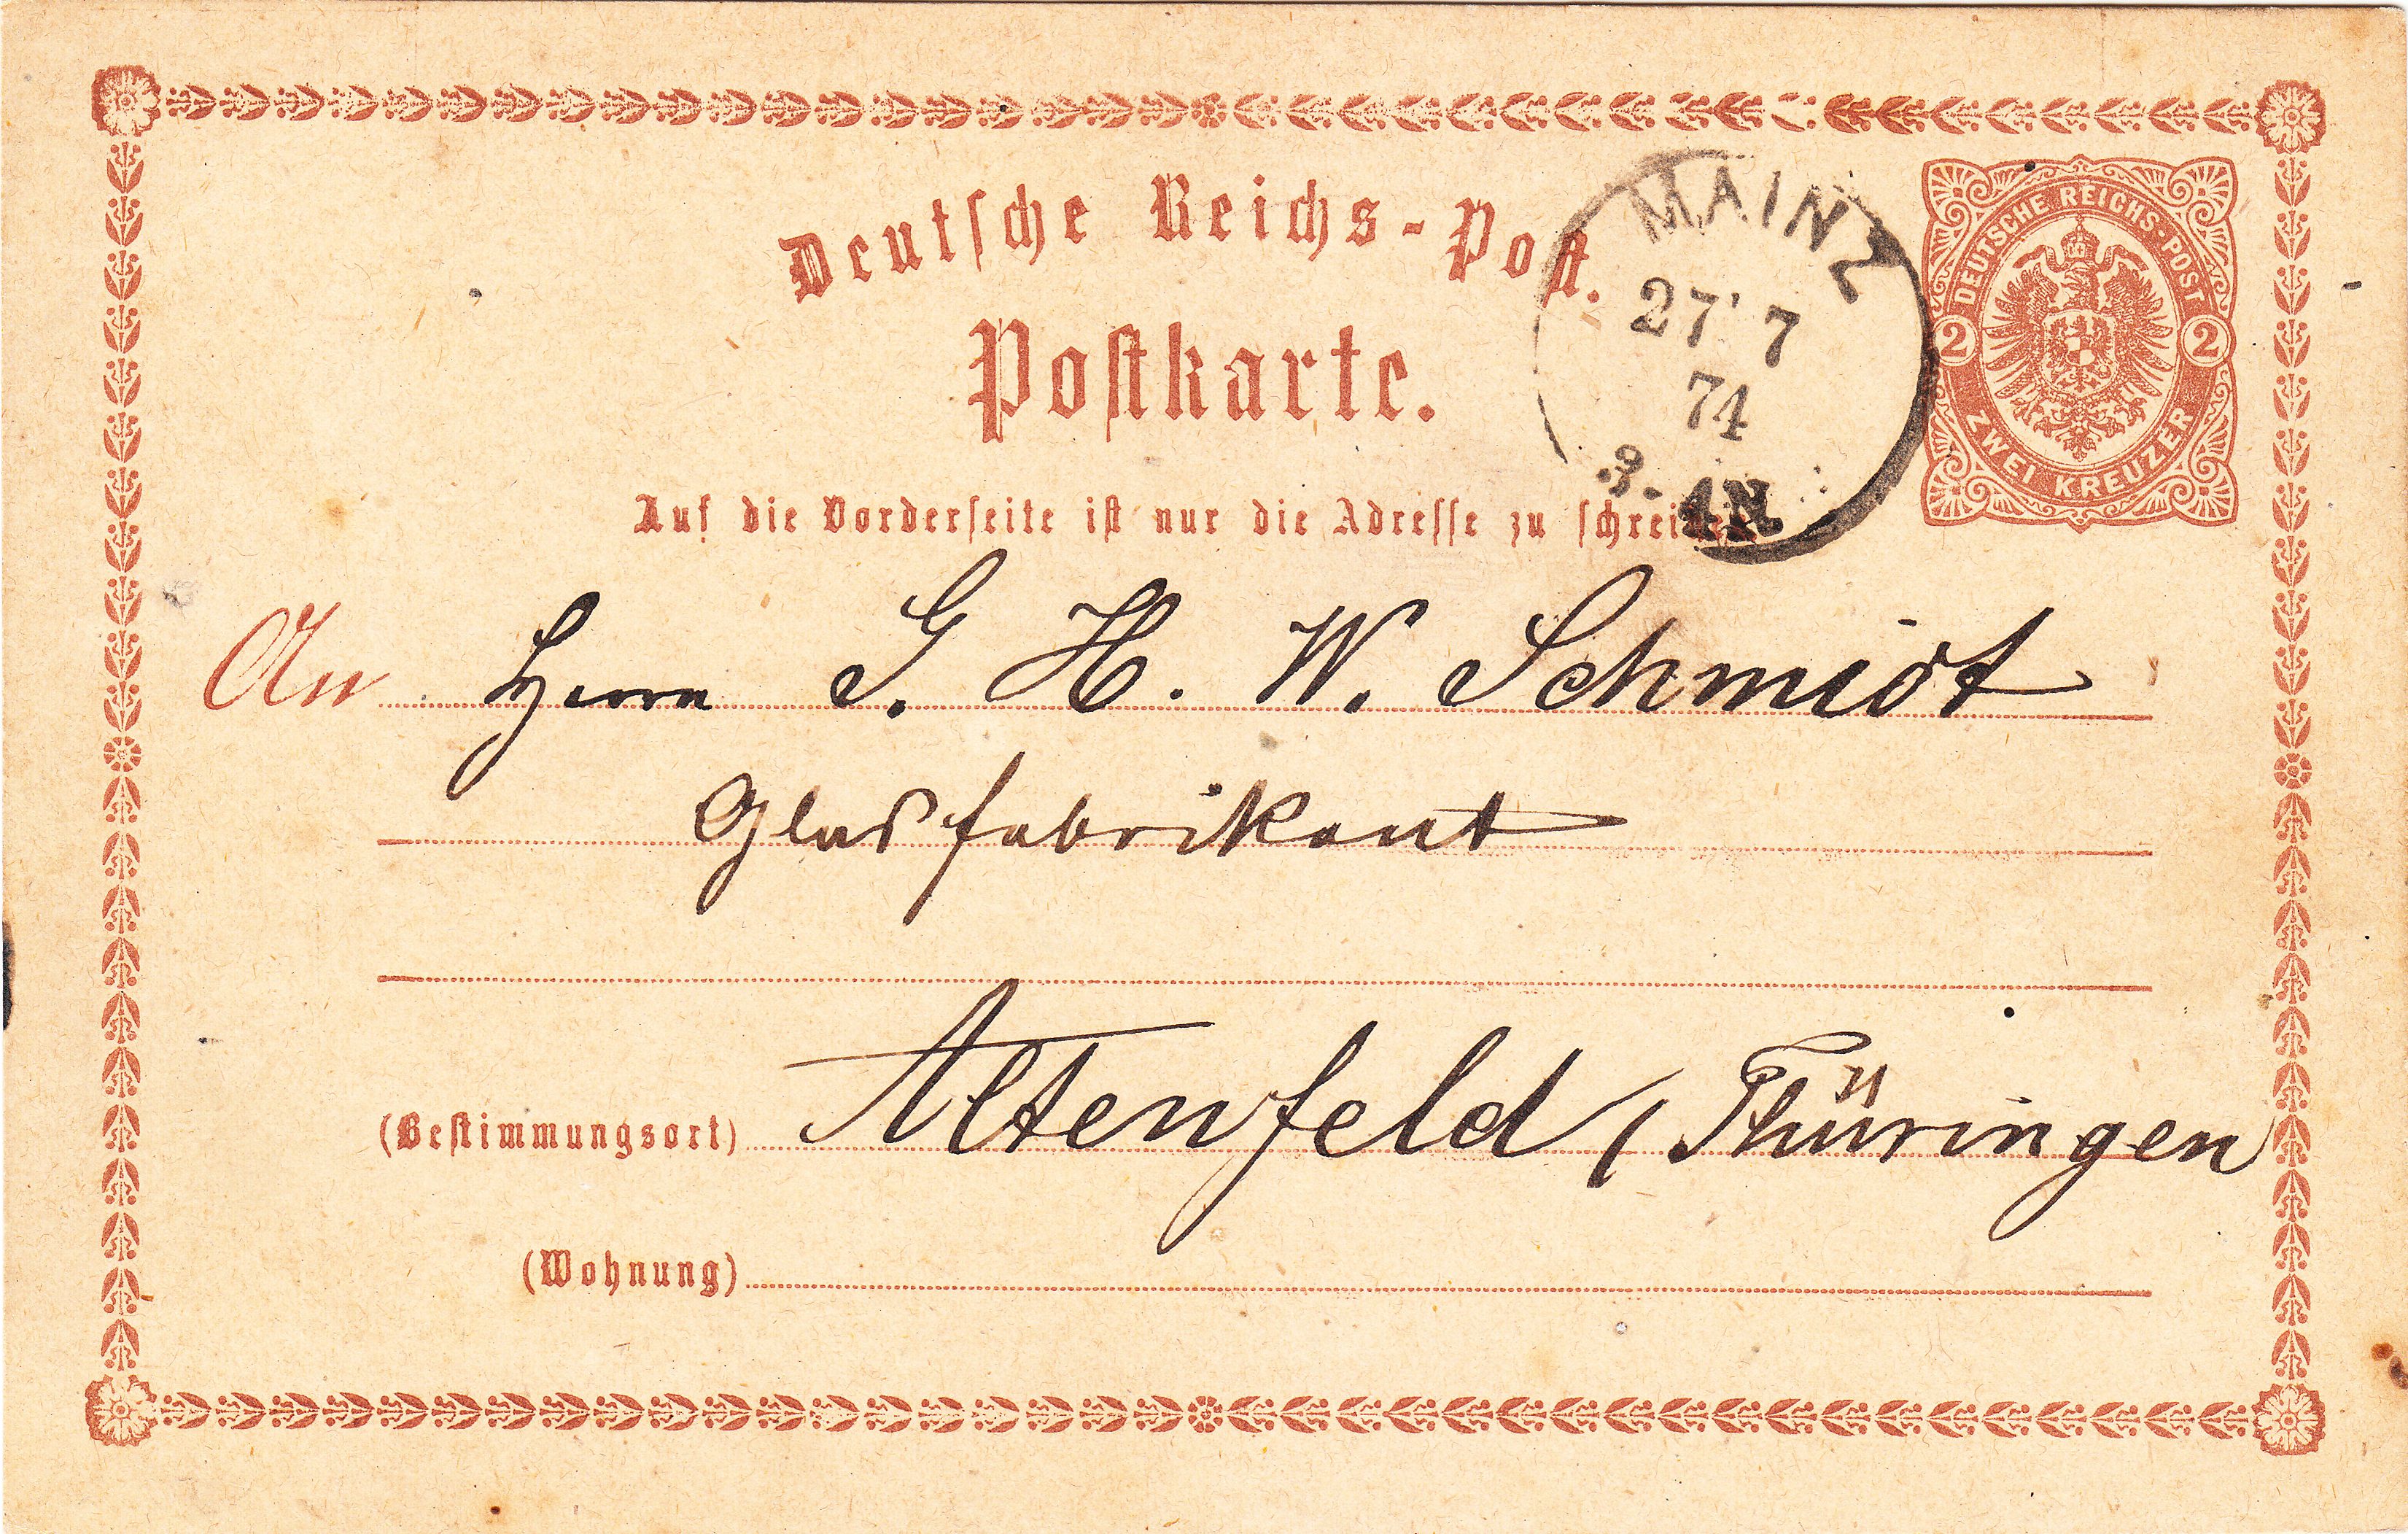 Deutsche Reichs-Post.
MAINZ
27 7
74
3-4N
DEUTSCHE REICHS-POST
2 2
ZWEI KREUZER
Postkarte.
Auf die Vorderseite ist nur die Adresse zu schreiben.
An Herrn G. H. W. Schmidt
Glasfabrikant
(Bestimmungsort) Altenfeld / Thüringen
(Wohnung)